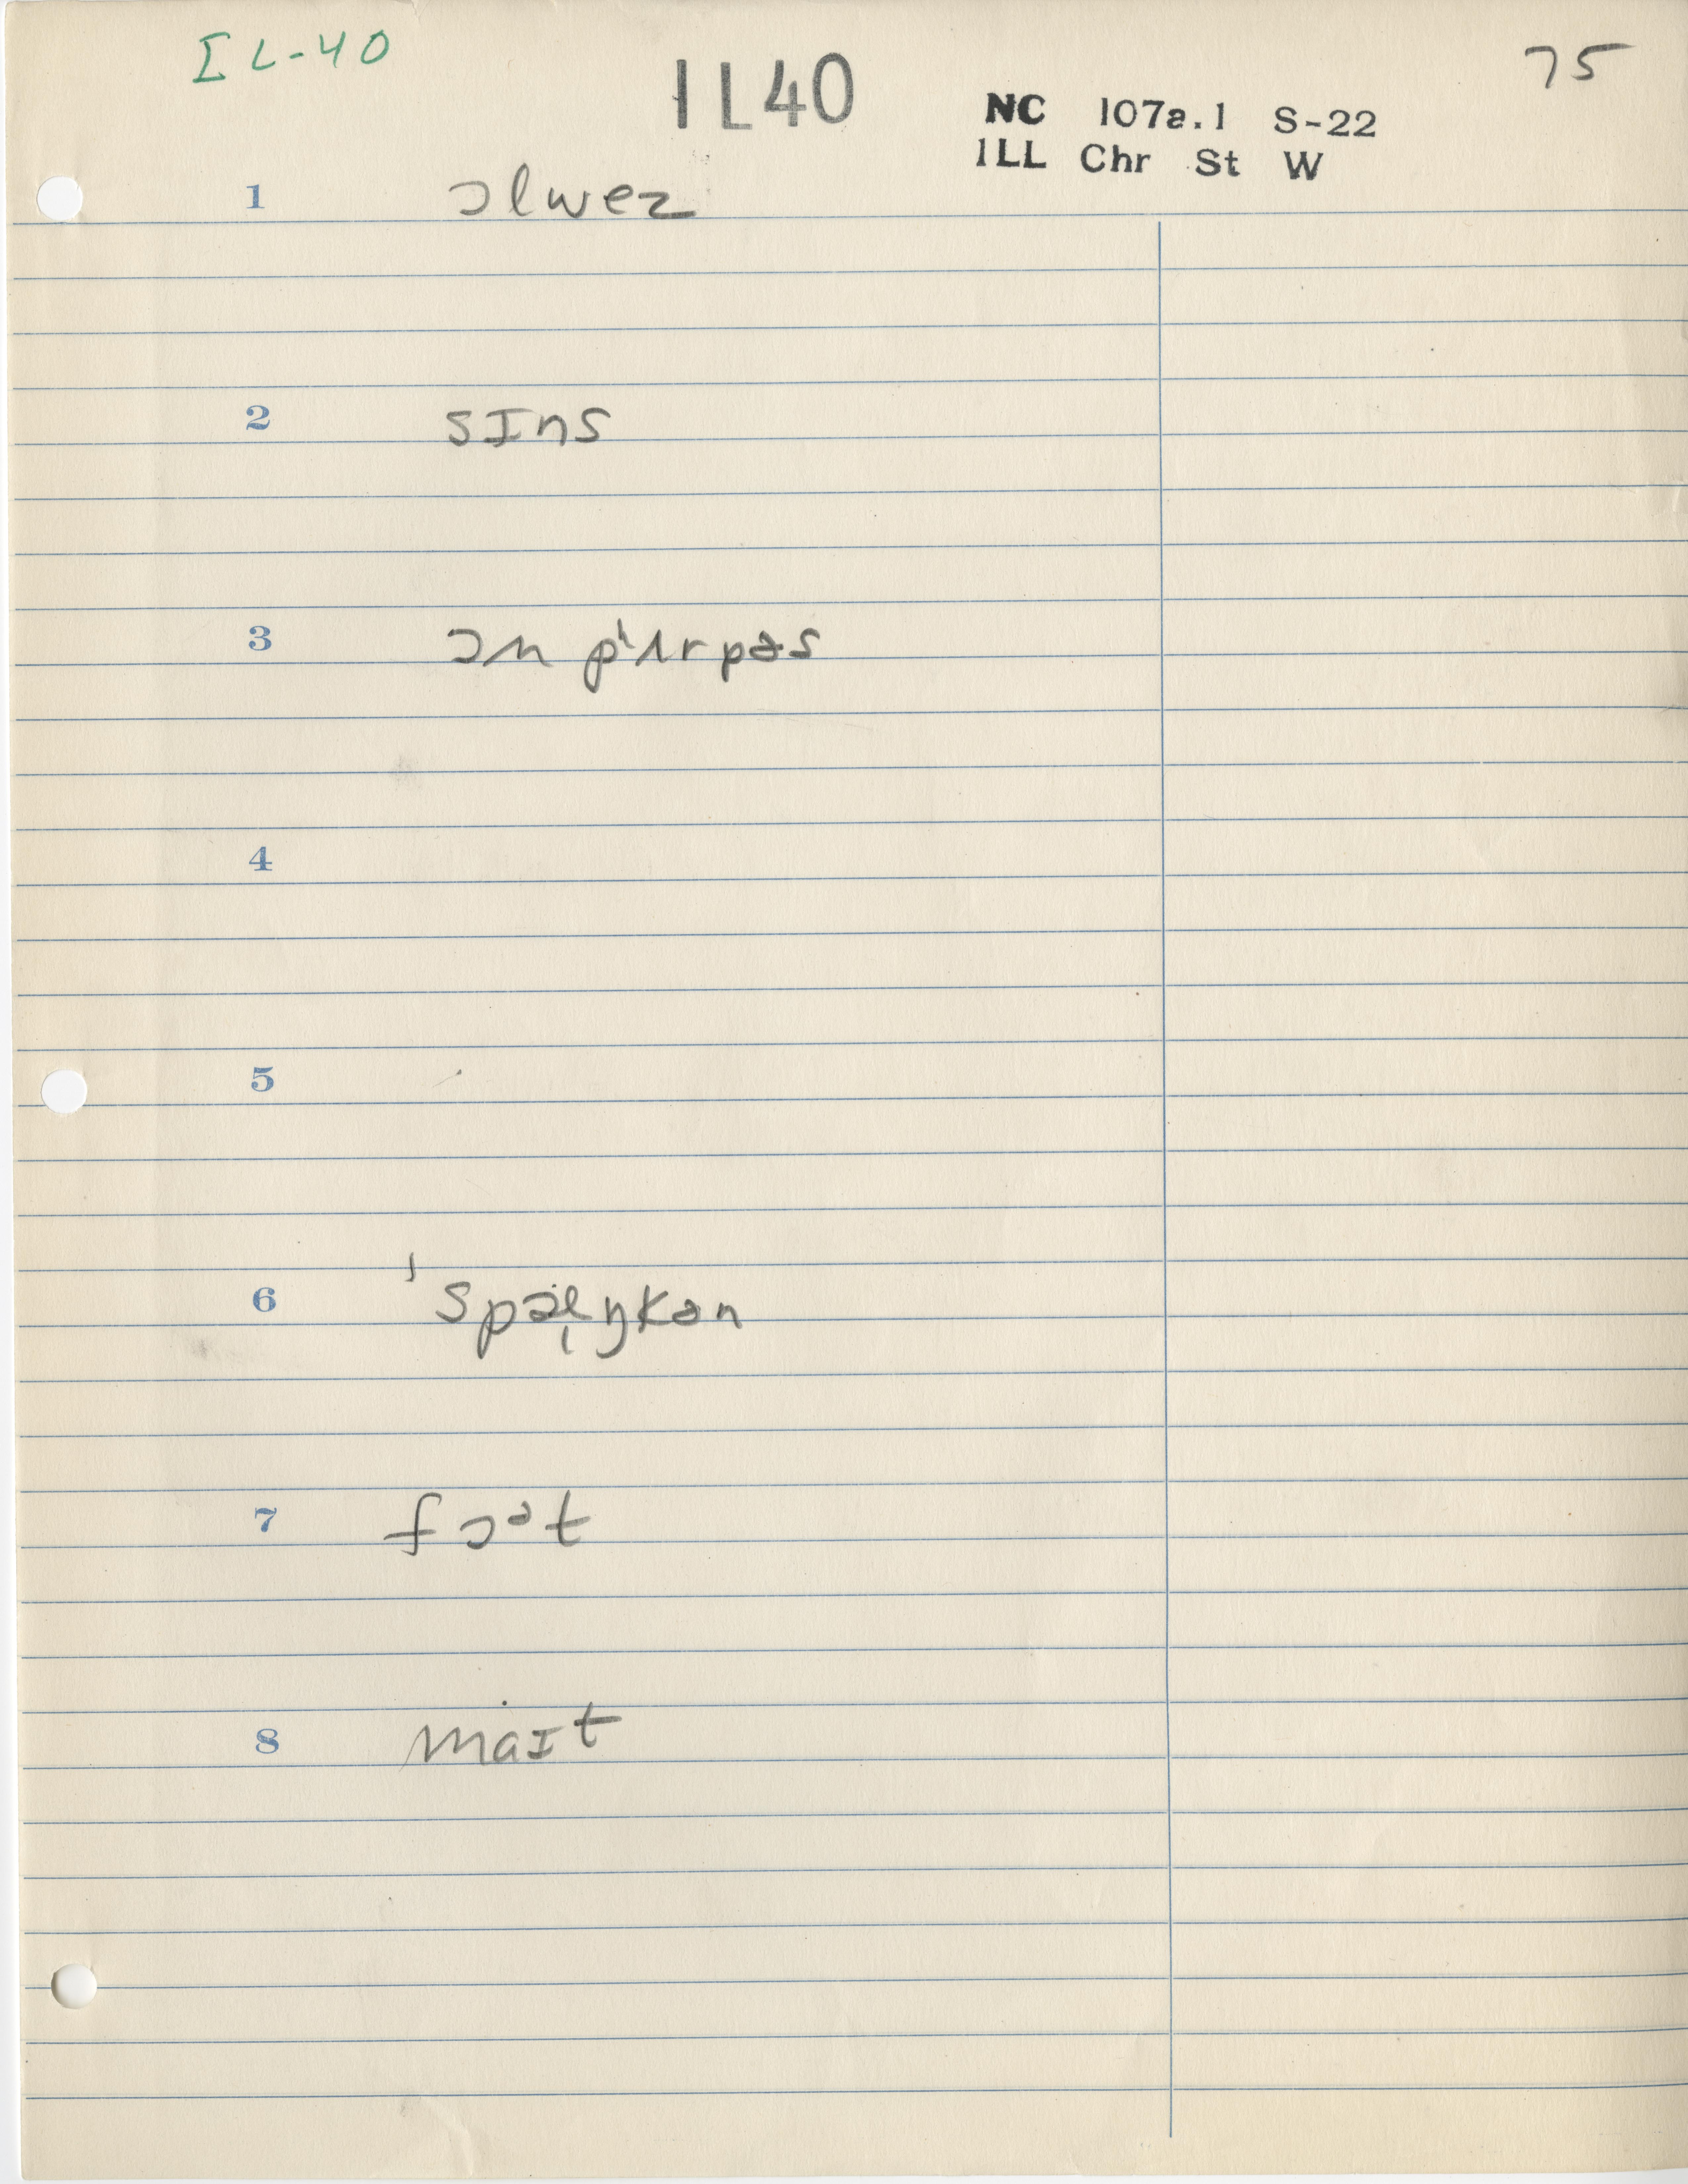 IL-40
IL40
75
NC 107a.1 S-22
ILL Chr St W
1 ɔlwez
2 sɪns
3 ɔn pʻʌrpəs
4
5
6
7 fɔᵊt
8 maɪt